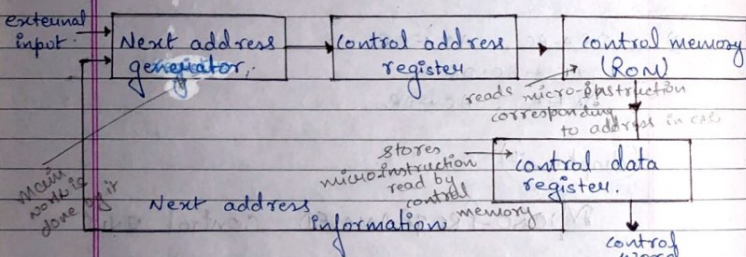 external
input.
Next address
generator.
control address
register
control memory
(ROM)
reads micro-instruction
corresponding
to address in CAR
stores
microinstruction
read by
control
memory
control data
register.
main
work is
done by it
Next address
information
control
word